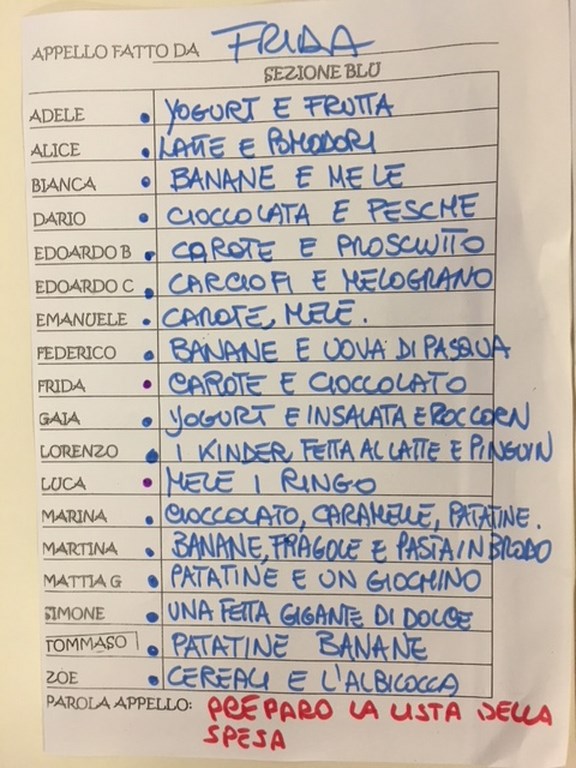 APPELLO FATTO DA FRIDA
SEZIONE BLU
ADELE • YOGURT E FRUTTA
ALICE • LATTE E POMODORI
BIANCA • BANANE E MELE
DARIO • CIOCCOLATA E PESCHE
EDOARDO B • CAROTE E PROSCIUTTO
EDOARDO C • CARCIOFI E MELOGRANO
EMANUELE • CAROTE, MELE.
FEDERICO • BANANE E UOVA DI PASQUA
FRIDA • CAROTE E CIOCCOLATO
GAIA • YOGURT E INSALATA E POCCORN
LORENZO • I KINDER, FETTA AL LATTE E PINGUIN
LUCA • MELE I RINGO
MARINA • CIOCCOLATO, CARAMELLE, PATATINE.
MARTINA • BANANE, FRAGOLE E PASTA IN BRODO
MATTIA G • PATATINE E UN GIOCHINO
SIMONE • UNA FETTA GIGANTE DI DOLCE
TOMMASO • PATATINE BANANE
ZOE • CEREALI E L'ALBICOCCA
PAROLA APPELLO: PREPARO LA LISTA DELLA
SPESA